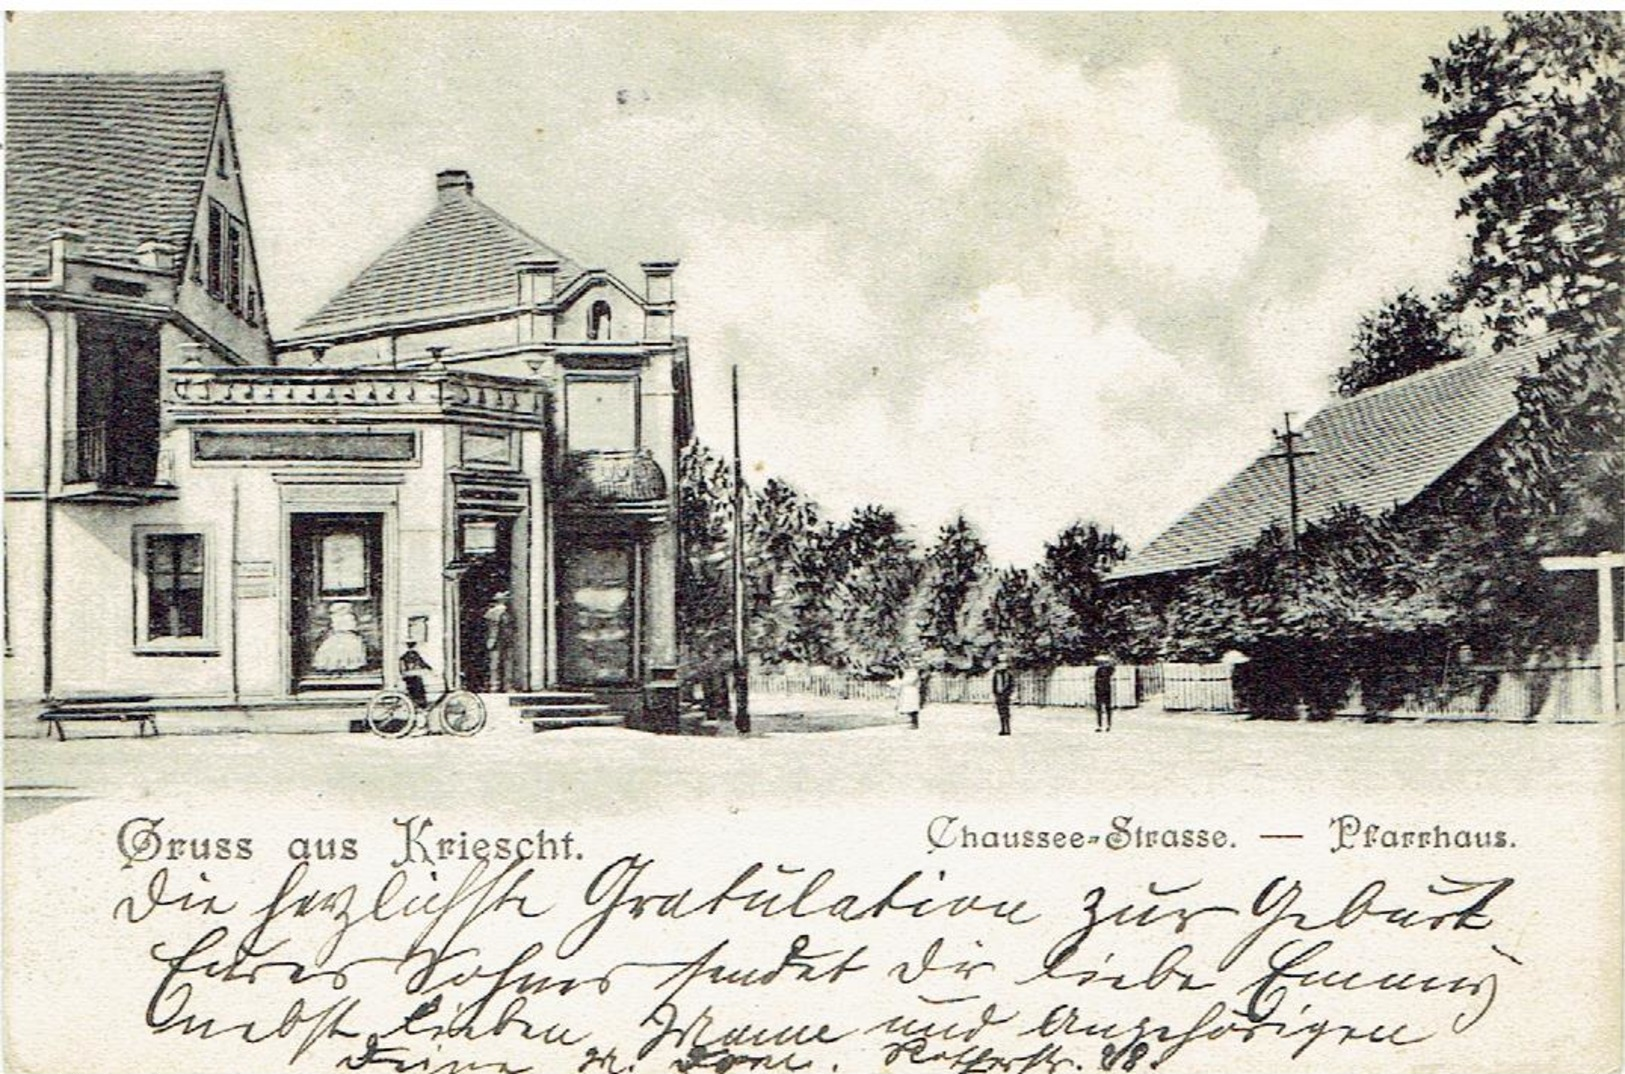 Gruss aus Kriescht.
Chaussee-Strasse. — Pfarrhaus.
Die herzlichste Gratulation zur Geburt
Eures Sohnes sendet Dir liebe Emmy
nebst lieben Mann und Angehörigen
Deine M.